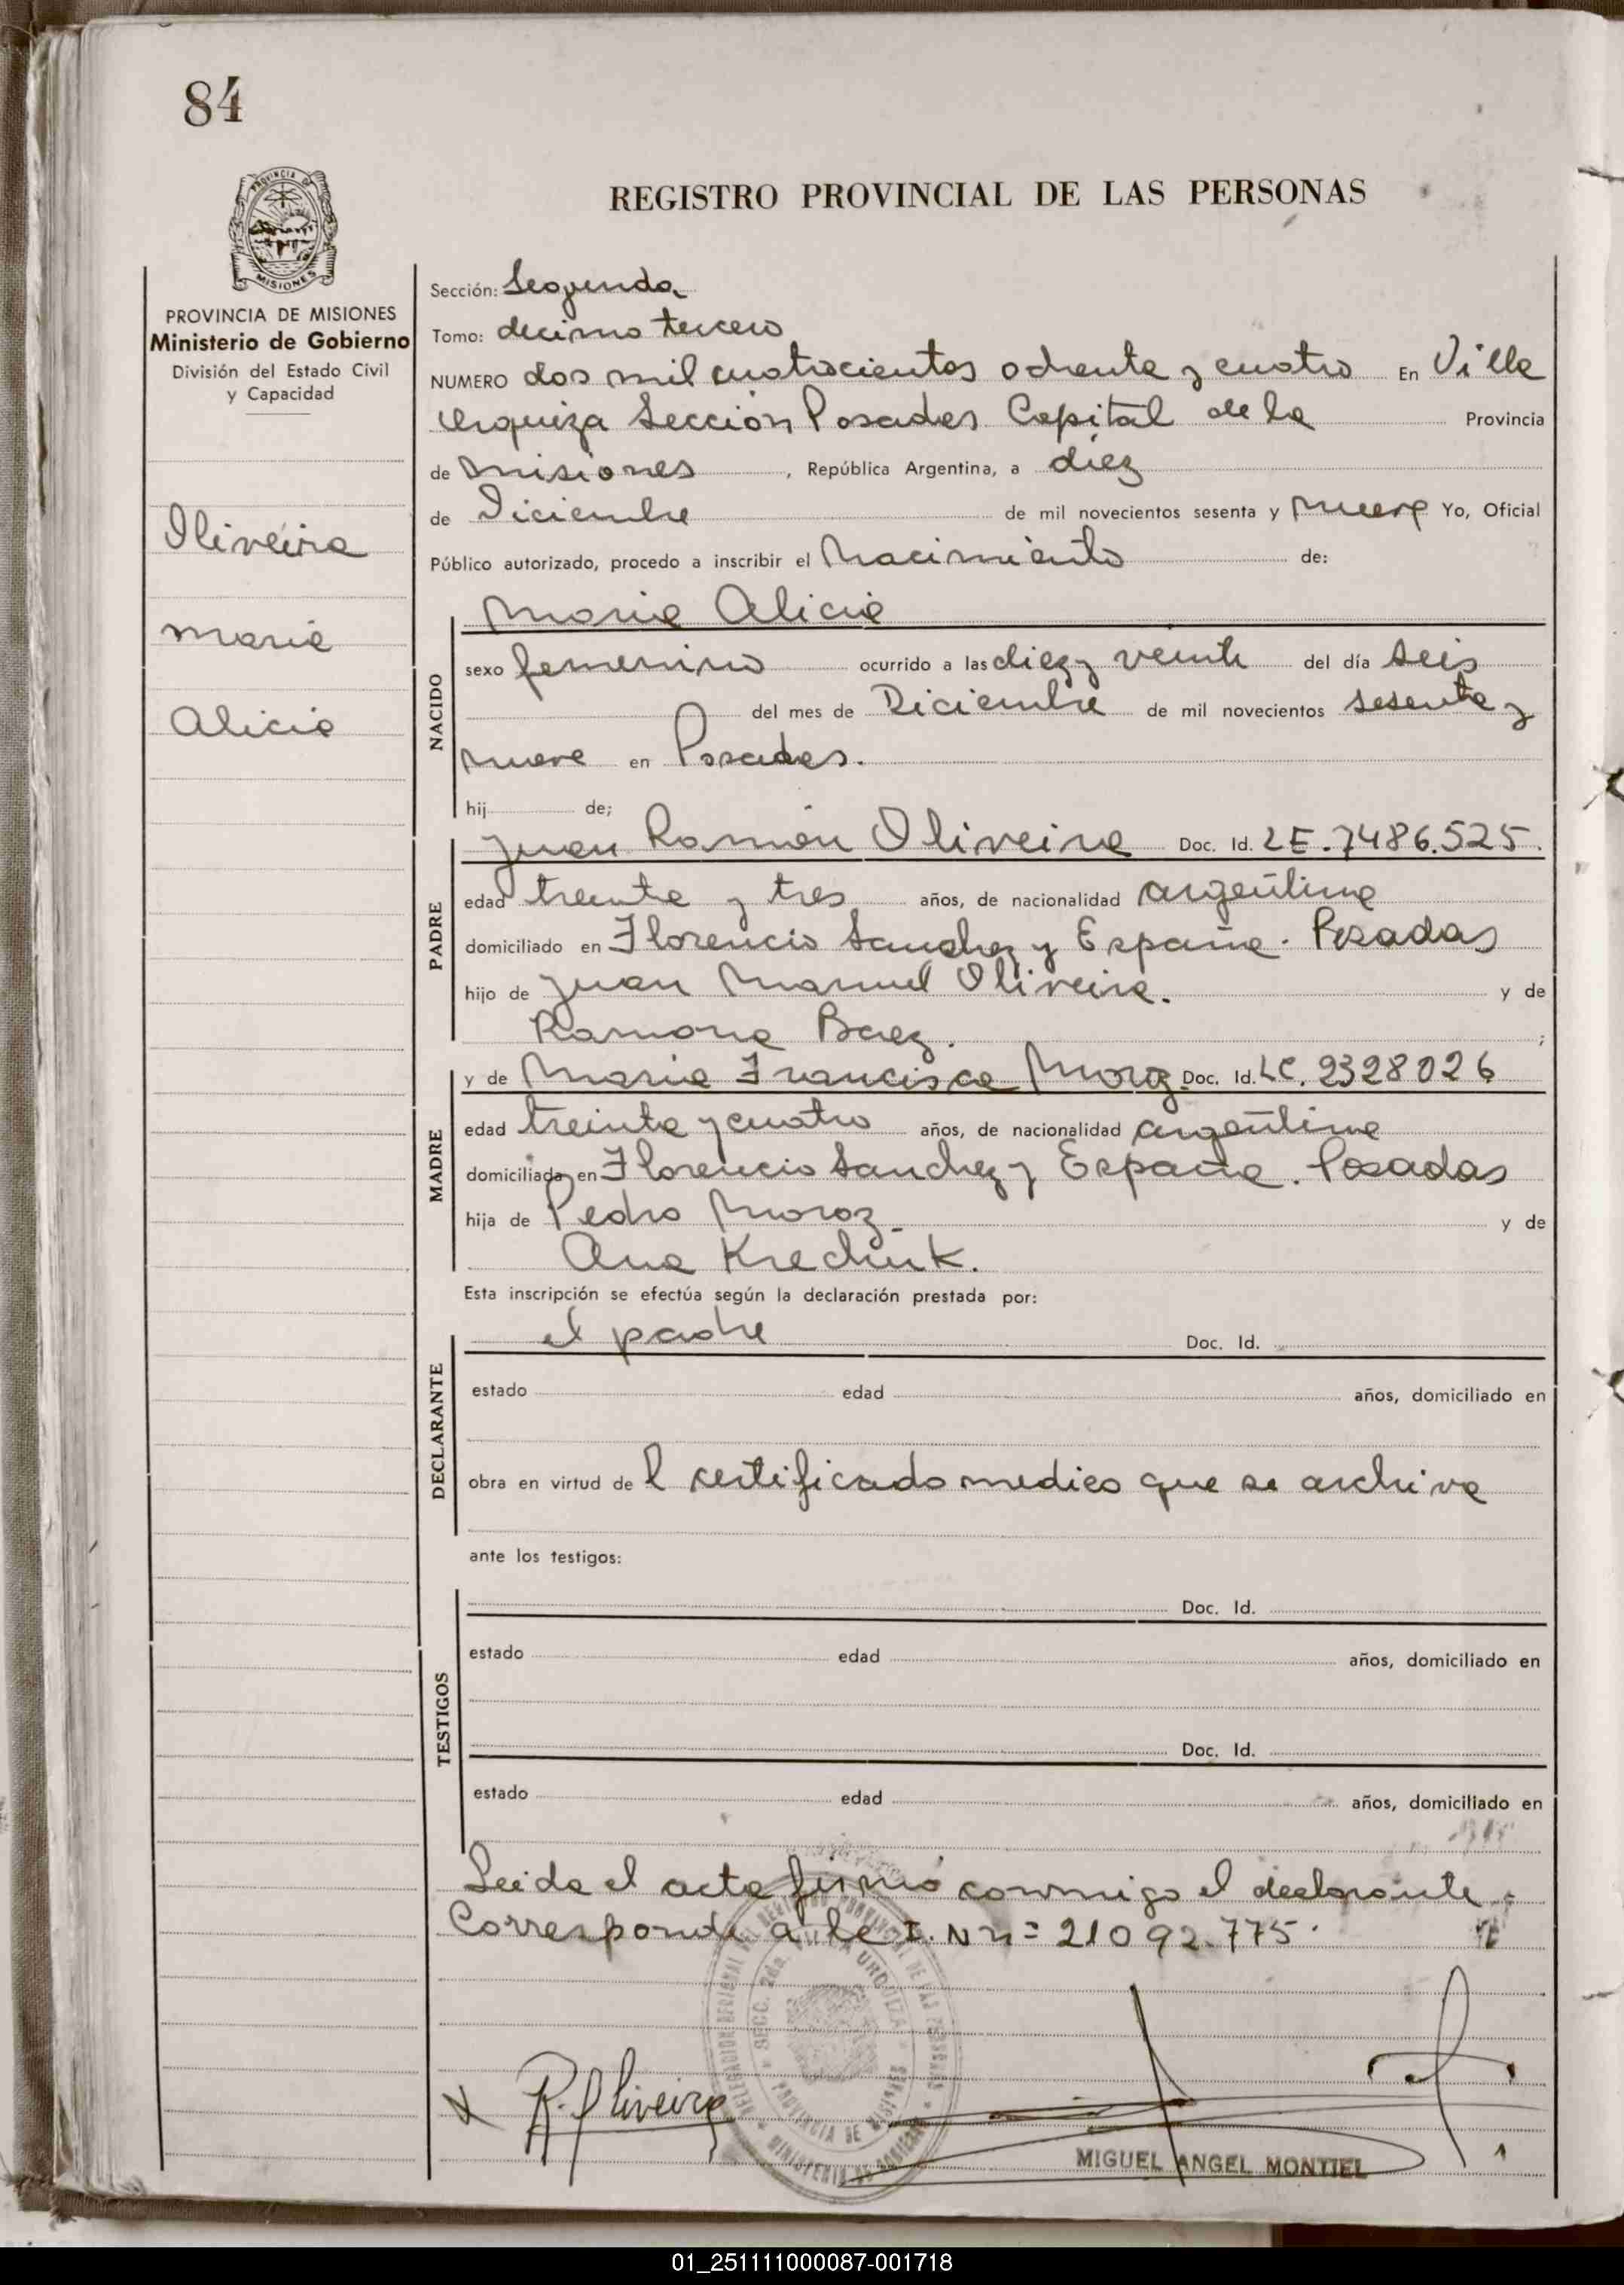 84
PROVINCIA DE
MISIONES
PROVINCIA DE MISIONES
Ministerio de Gobierno
División del Estado Civil
y Capacidad
Oliveira
Maria
Alicia
REGISTRO PROVINCIAL DE LAS PERSONAS
Sección: Segunda
Tomo: decimo tercero
NUMERO dos mil cuatrocientos ochenta y cuatro En Villa
Urquiza Sección Posadas Capital de la Provincia
de Misiones, República Argentina, a diez
de Diciembre de mil novecientos sesenta y nueve Yo, Oficial
Público autorizado, procedo a inscribir el Nacimiento de:
NACIDO
Maria Alicia
sexo femenino ocurrido a las diez y veinte del día seis
del mes de Diciembre de mil novecientos sesenta y
nueve en Posadas.
hij de;
PADRE
Juan Ramón Oliveira Doc. Id. LE. 7486.525.
edad treinta y tres años, de nacionalidad argentina
domiciliado en Florencio Sanchez y España. Posadas
hijo de Juan Manuel Oliveira. y de
Ramona Baez. ;
MADRE
y de Maria Francisca Moroz Doc. Id. LC. 2328026
edad treinta y cuatro años, de nacionalidad argentina
domiciliada en Florencio Sanchez y España. Posadas
hija de Pedro Moroz y de
Ana Krechuk.
Esta inscripción se efectúa según la declaración prestada por:
DECLARANTE
el padre Doc. Id.
estado edad años, domiciliado en
obra en virtud de l certificado medico que se archiva
ante los testigos:
TESTIGOS
Doc. Id.
estado edad años, domiciliado en
Doc. Id.
estado edad años, domiciliado en
Leida el acta firmó conmigo el declarante.
Corresponde a le I. N n= 21092.775.
DELEGACION REGIONAL DEL REGISTRO PROVINCIAL DE LAS PERSONAS
SECC. 2da. VILLA URQUIZA
PROVINCIA DE MISIONES
MINISTERIO DE GOBIERNO
R. Oliveira
MIGUEL ANGEL MONTIEL
01_251111000087-001718